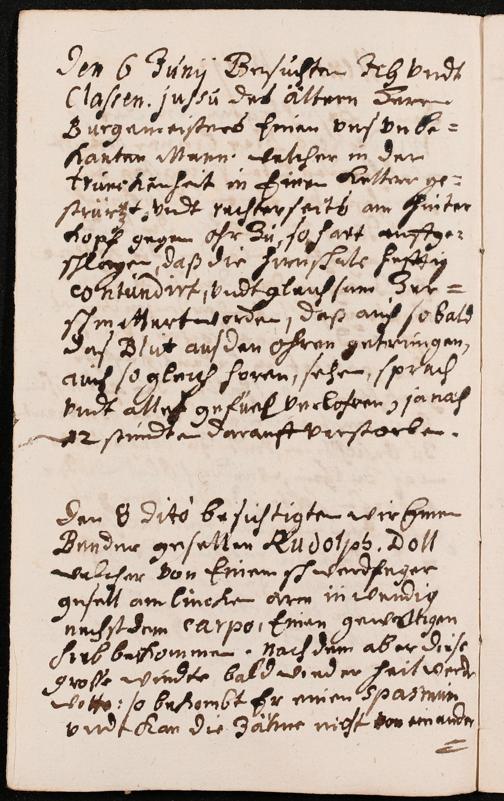 Den 6 Junij Besuchten Ich vndt
Classen. jussu des ältern Herrn
Burgemeisters Einen vns vnbe=
kanten Mann. welcher in der
trunckenheit in Einen Keller ge=
stürtzt, vndt rechterseits am hinter
Kopff gegen ohr Zu, so hart auffge=
schlagen, daß die hirnschale hefftig
contundirt, vndt gleichsam Zer=
schmettert worden, daß auch so bald
das Blut aus den ohren getrungen,
auch so gleich hören, sehen, sprach
vndt alles gefühl verlohren, ja nach
12 stunden darauff verstorben.
Den 8 dito besichtigten wir Einen
Bender gesellen Rudolph. Doll
welcher von Einem schwerdfeger
gesell am lincken arm inwendig
nechst dem carpo, Einen gewaltigen
hieb bekommen. nach dem aber diese
grosse wundte bald wieder heil werden
wolte: so bekombt Er einen spasmum
vndt kan die Zähne nicht von einander